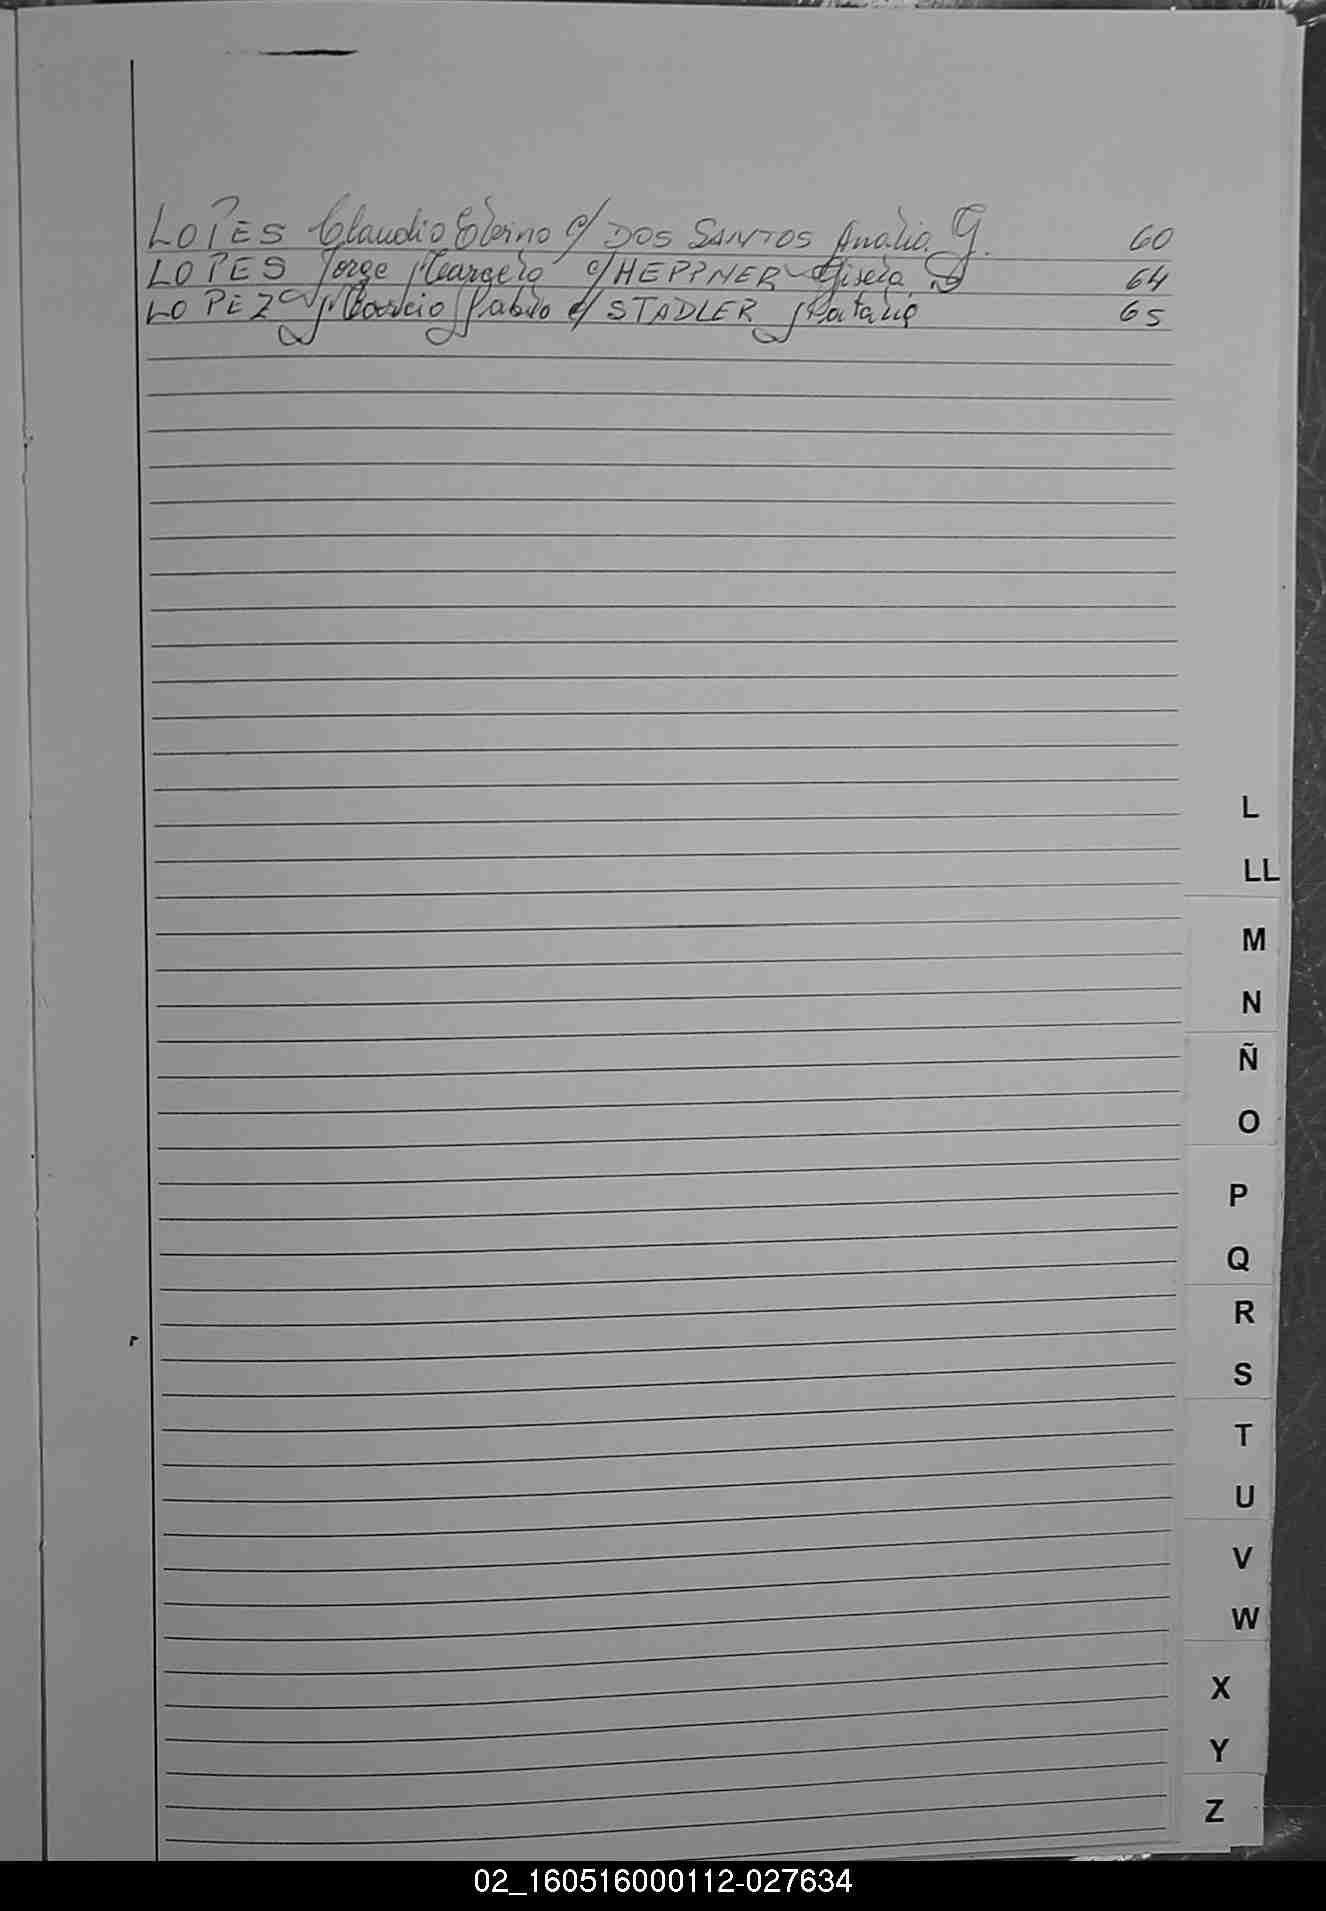 LOPES Claudio Elvino c/ DOS SANTOS Analia G. 60
LOPES Jorge Marcelo c/ HEPPNER Gisela D 64
LOPEZ Mauricio Pablo c/ STADLER Natalia 65
L
LL
M
N
Ñ
O
P
Q
R
S
T
U
V
W
X
Y
Z
02_160516000112-027634